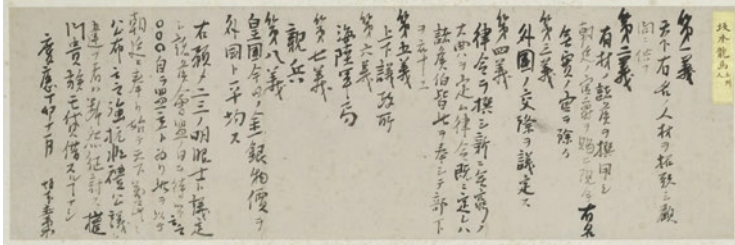 坂本龍馬
第一義
天下有名ノ人材ヲ招致シ顧
問ニ供フ
第二義
有材ノ諸侯ヲ撰用シ
朝廷ノ官爵ヲ賜ヒ現今有名
無実ノ官ヲ除ク
第三義
外国ノ交際ヲ議定ス
第四義
律令ヲ撰シ新ニ無窮ノ
大典ヲ定ム律令既ニ定レハ
諸侯伯皆此ヲ奉シテ部下
ヲ率ユ
第五義
上下議政所
第六義
海陸軍局
第七義
親兵
第八義
皇国今日ノ金銀物価ヲ
外国ト平均ス
右預メ二三ノ明眼士ト議定
シ諸侯会盟ノ日ヲ待ツテ云云
○○○自ラ盟主ト為リ此ヲ以テ
朝廷ニ奉リ始テ天下万民ニ
公布云云強抗非礼公議ニ
違フ者ハ断然征討ス権
門貴族モ貸借スルコトナシ
慶應丁卯十一月 坂本直柔